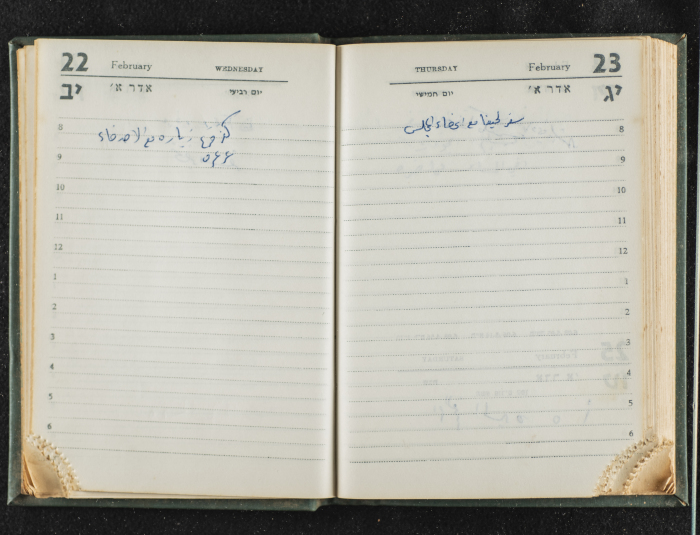 22 February WEDNESDAY
יב אדר א' יום רביעי
8
زيارة مع الاصدقاء
9
10
11
12
1
2
3
4
5
6
THURSDAY February 23
יום חמישי אדר א' יג
سفر لحيفا مع اعضاء المجلس
8
9
10
11
12
1
2
3
4
5
6